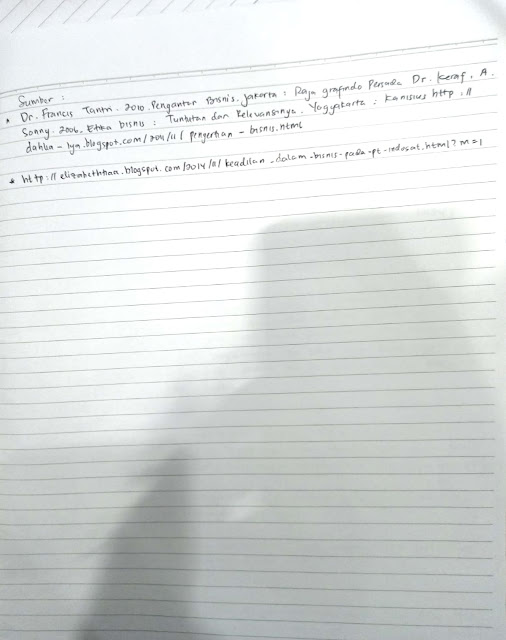 Sumber :
* Dr. Francis Tantri. 2010. Pengantar Bisnis. Jakarta : Raja grafindo Persada Dr. Keraf, A.
Sonny. 2006. Etika bisnis : Tuntutan dan Relevansinya. Yogyakarta : Kanisius http ://
dahlia - lya.blogspot.com / 2011 / 11 / pengertian - bisnis.html
* http :// elizabethtiaa.blogspot.com / 2014 / 11 / keadilan - dalam - bisnis - pada - pt - indosat.html ? m = 1